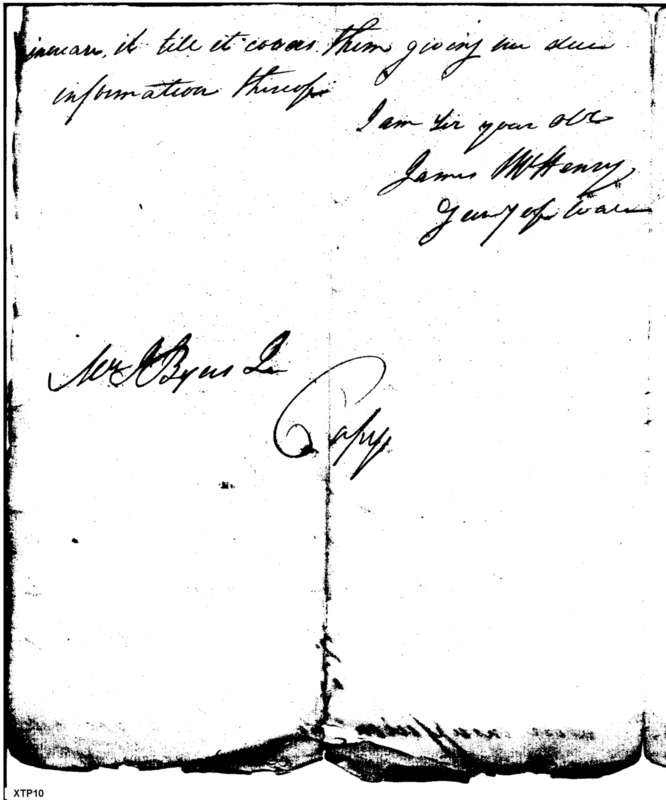 increase, it till it covers them giving me due
information thereof
I am Sir your Obt
James McHenry
Secy of War
Mr J Byers
Copy
XTP10